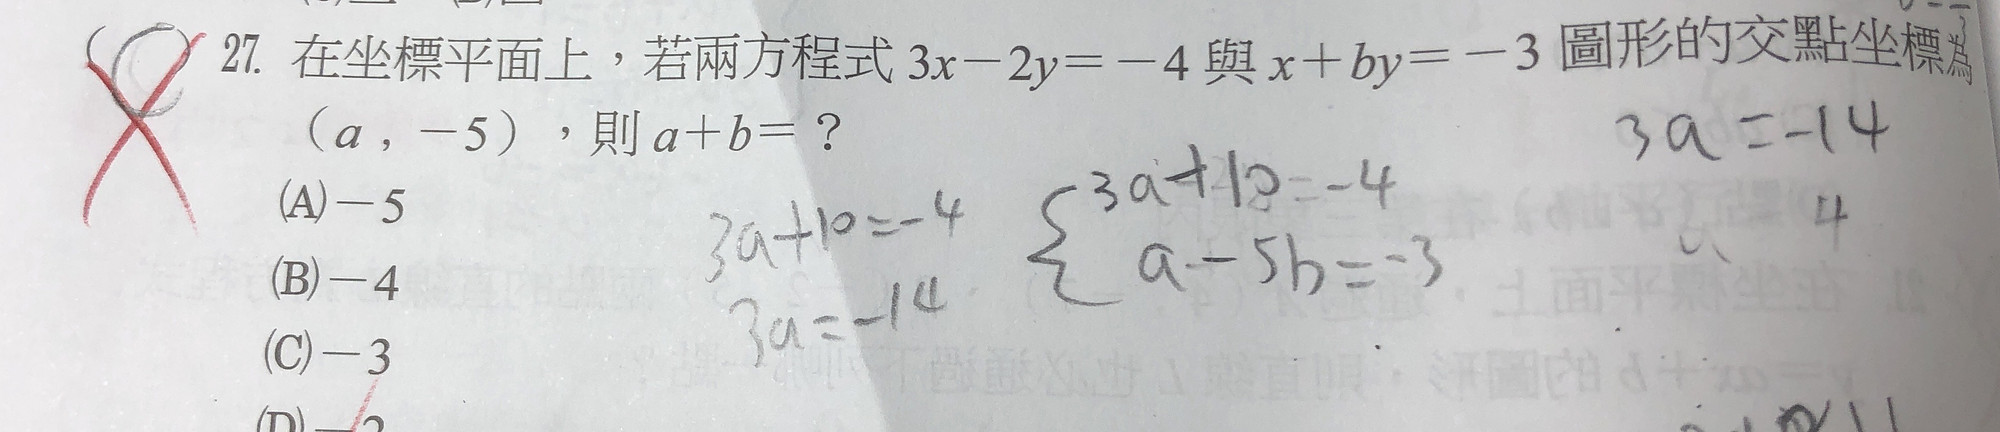 27. 在坐標平面上，若兩方程式 3x－2y＝－4 與 x＋by＝－3 圖形的交點坐標為
（a , －5），則 a＋b＝？
3a=-14
(A)－5
3a+10=-4
3a+10=-4
4
(B)－4
3a=-14
a-5b=-3
(C)－3
(D)－2